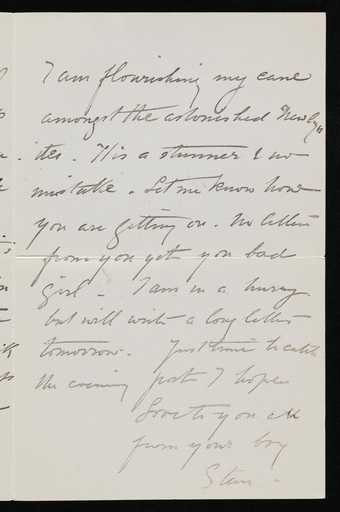 I am flourishing my cane
amongst the astonished Newly
ites. It is a stunner & no
mistake. Let me know how
you are getting on. No letters
from you yet you bad
girl - I am in a hurry
but will write a long letter
tomorrow. Just time to catch
the evening post I hope
Love to you all
from your boy
Stan -